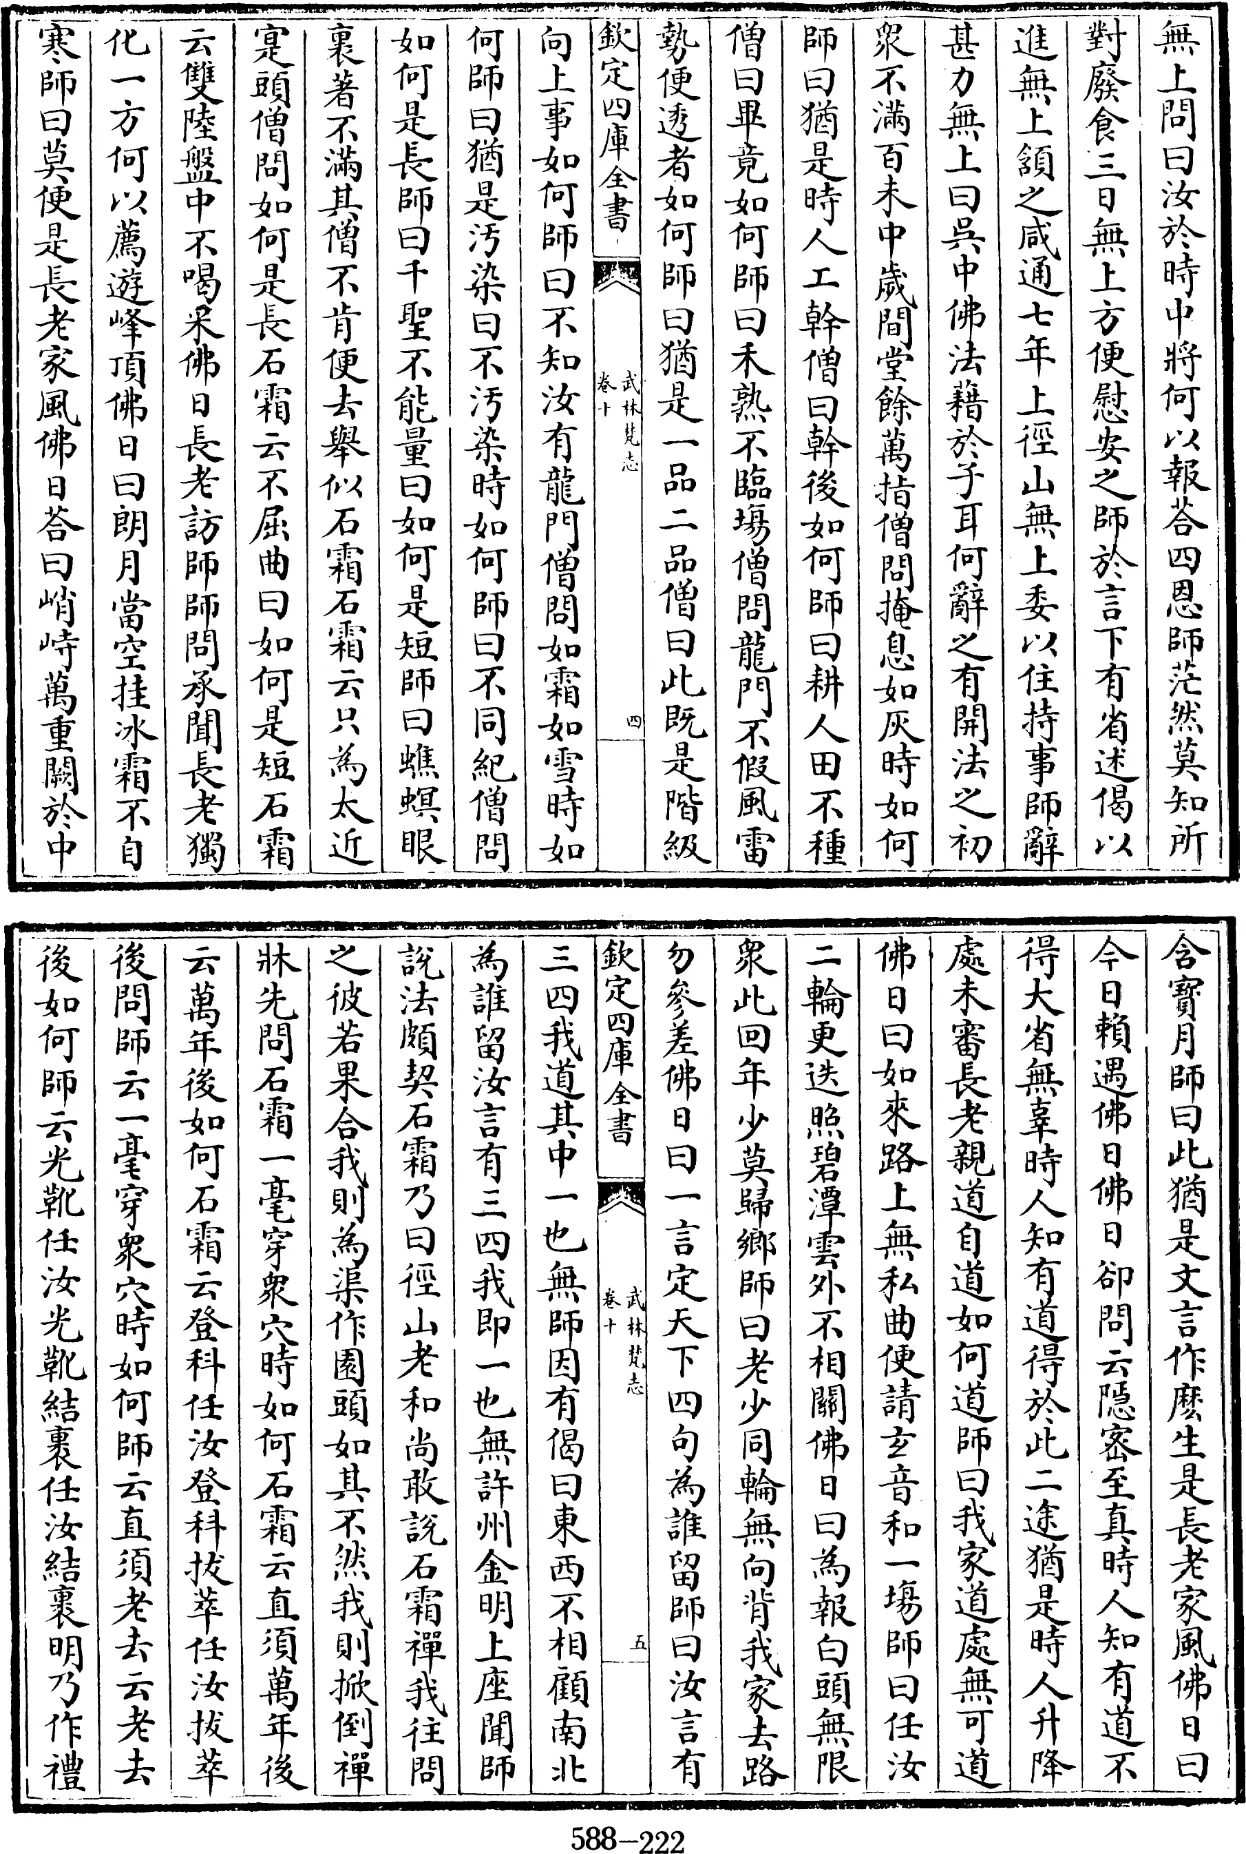 無上問曰汝於時中將何以報荅四恩師茫然莫知所
對廢食三日無上方便慰安之師於言下有省述偈以
進無上頷之咸通七年上徑山無上委以住持事師辭
甚力無上曰吳中佛法藉於子耳何辭之有開法之初
衆不滿百未中歲間堂餘萬指僧問掩息如灰時如何
師曰猶是時人工幹僧曰幹後如何師曰耕人田不種
僧曰畢竟如何師曰禾熟不臨場僧問龍門不假風雷
勢便透者如何師曰猶是一品二品僧曰此既是階級
欽定四庫全書
武林梵志
卷十
四
向上事如何師曰不知汝有龍門僧問如霜如雪時如
何師曰猶是汚染曰不汚染時如何師曰不同紀僧問
如何是長師曰千聖不能量曰如何是短師曰蟭螟眼
裏著不滿其僧不肯便去舉似石霜石霜云只為太近
寔頭僧問如何是長石霜云不屈曲曰如何是短石霜
云雙陸盤中不喝采佛日長老訪師師問承聞長老獨
化一方何以薦遊峰頂佛日曰朗月當空挂冰霜不自
寒師曰莫便是長老家風佛日荅曰峭峙萬重闗於中
含寳月師曰此猶是文言作麽生是長老家風佛日曰
今日賴遇佛日佛日卻問云隱密至真時人知有道不
得大省無辜時人知有道得於此二途猶是時人升降
處未審長老親道自道如何道師曰我家道處無可道
佛日曰如來路上無私曲便請玄音和一場師曰任汝
二輪更迭照碧潭雲外不相關佛日曰為報白頭無限
衆此回年少莫歸鄉師曰老少同輪無向背我家去路
勿參差佛日曰一言定天下四句為誰留師曰汝言有
欽定四庫全書
武林梵志
卷十
五
三四我道其中一也無師因有偈曰東西不相顧南北
為誰留汝言有三四我即一也無許州金明上座聞師
說法頗契石霜乃曰徑山老和尚敢說石霜禪我往問
之彼若果合我則為渠作園頭如其不然我則掀倒禪
牀先問石霜一毫穿衆穴時如何石霜云直須萬年後
云萬年後如何石霜云登科任汝登科拔萃任汝拔萃
後問師云一毫穿衆穴時如何師云直須老去云老去
後如何師云光靴任汝光靴結裹任汝結裹明乃作禮
588-222